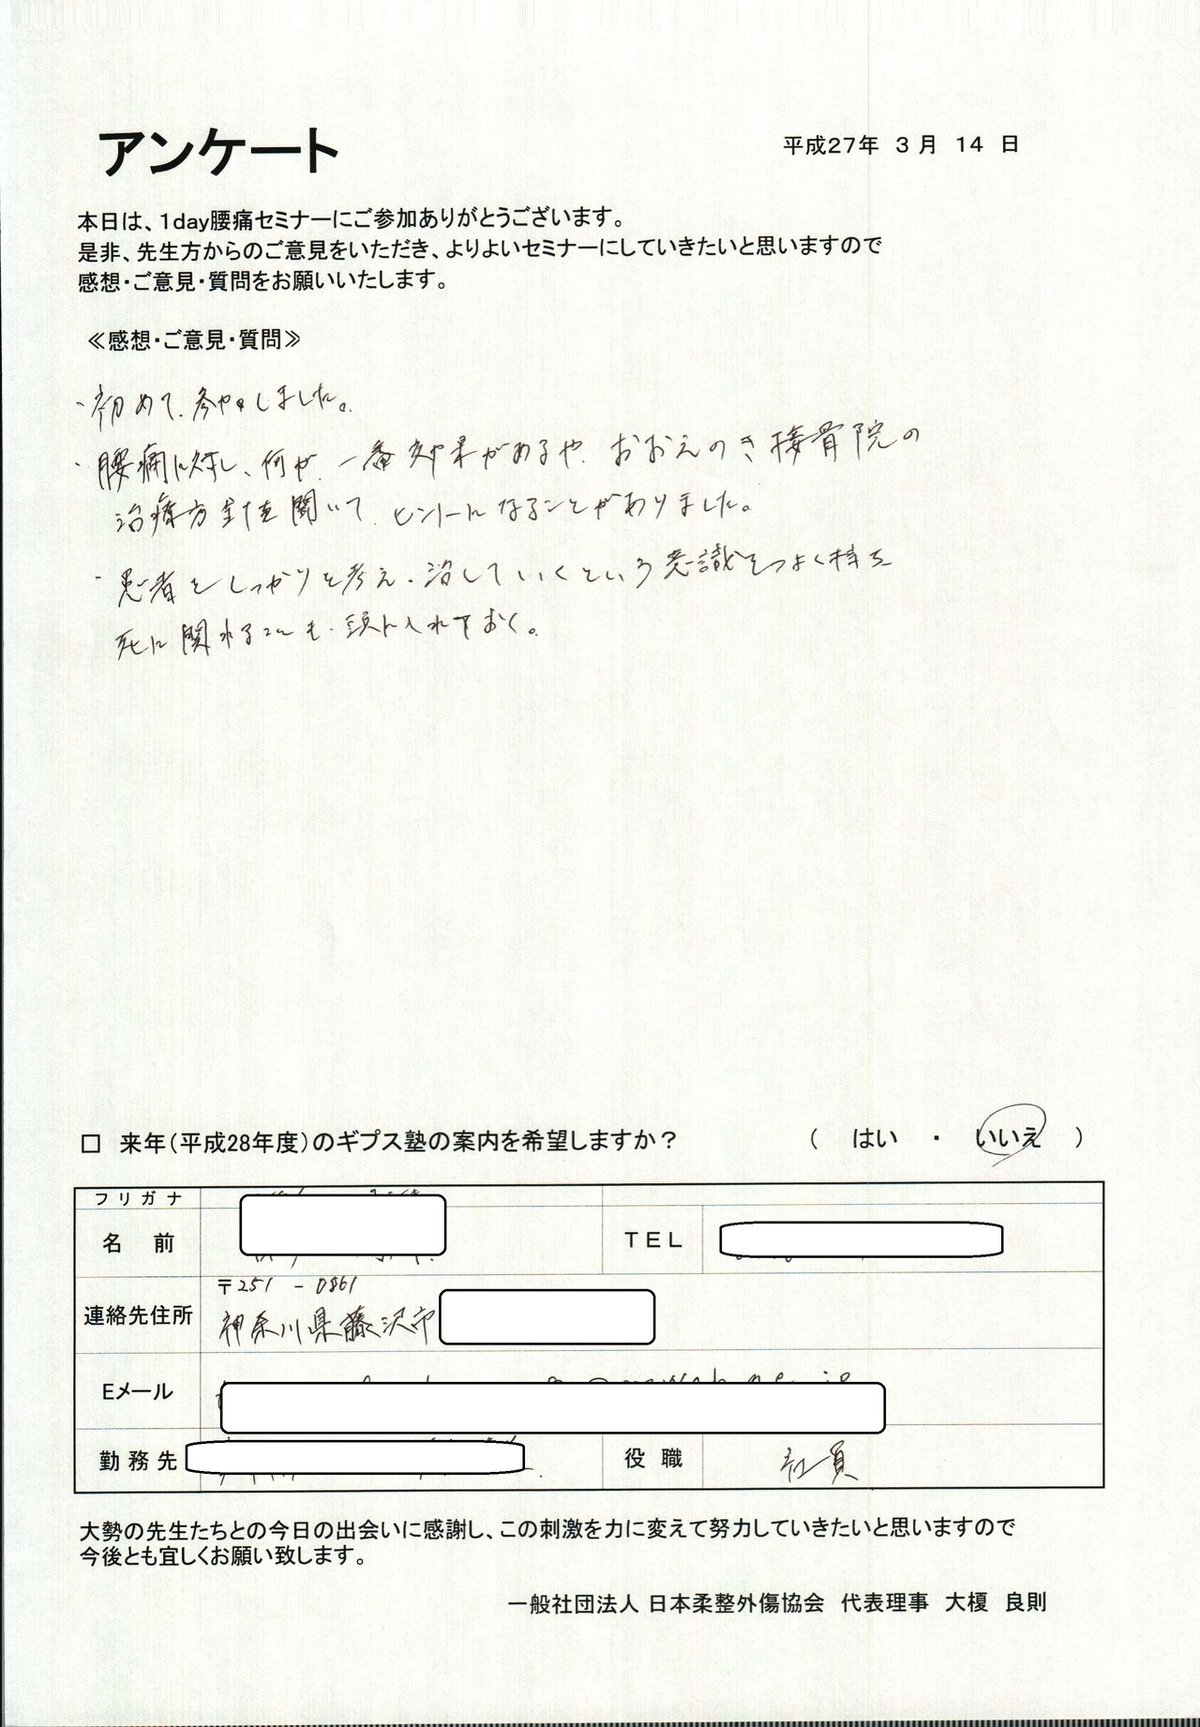 アンケート
平成27年 3月 14 日
本日は、1day腰痛セミナーにご参加ありがとうございます。
是非、先生方からのご意見をいただき、よりよいセミナーにしていきたいと思いますので
感想・ご意見・質問をお願いいたします。
≪感想・ご意見・質問≫
・初めて、参加しました。
・腰痛に対し、何が、一番効果があるや、おおえのき接骨院の
治療方針を聞いて、ヒントになることがありました。
・患者をしっかりと考え、治していくという意識をつよく持ち
死に関わることも、頭に入れておく。
□ 来年(平成28年度)のギプス塾の案内を希望しますか？ ( はい ・ いいえ )
フリガナ
名 前
TEL
連絡先住所
〒251 - 0861
神奈川県藤沢市
Eメール
勤務先
役職
社員
大勢の先生たちとの今日の出会いに感謝し、この刺激を力に変えて努力していきたいと思いますので
今後とも宜しくお願い致します。
一般社団法人 日本柔整外傷協会 代表理事 大榎 良則